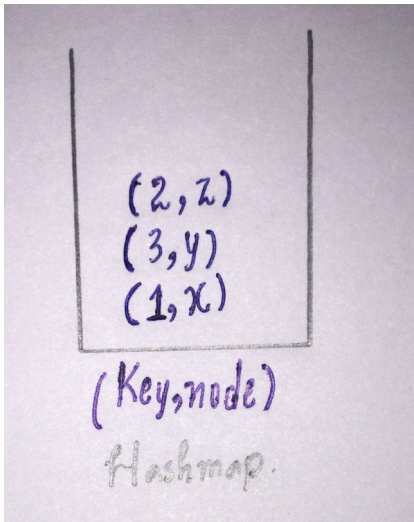 (2,z)
(3,y)
(1,x)
(Key,node)
Hashmap.